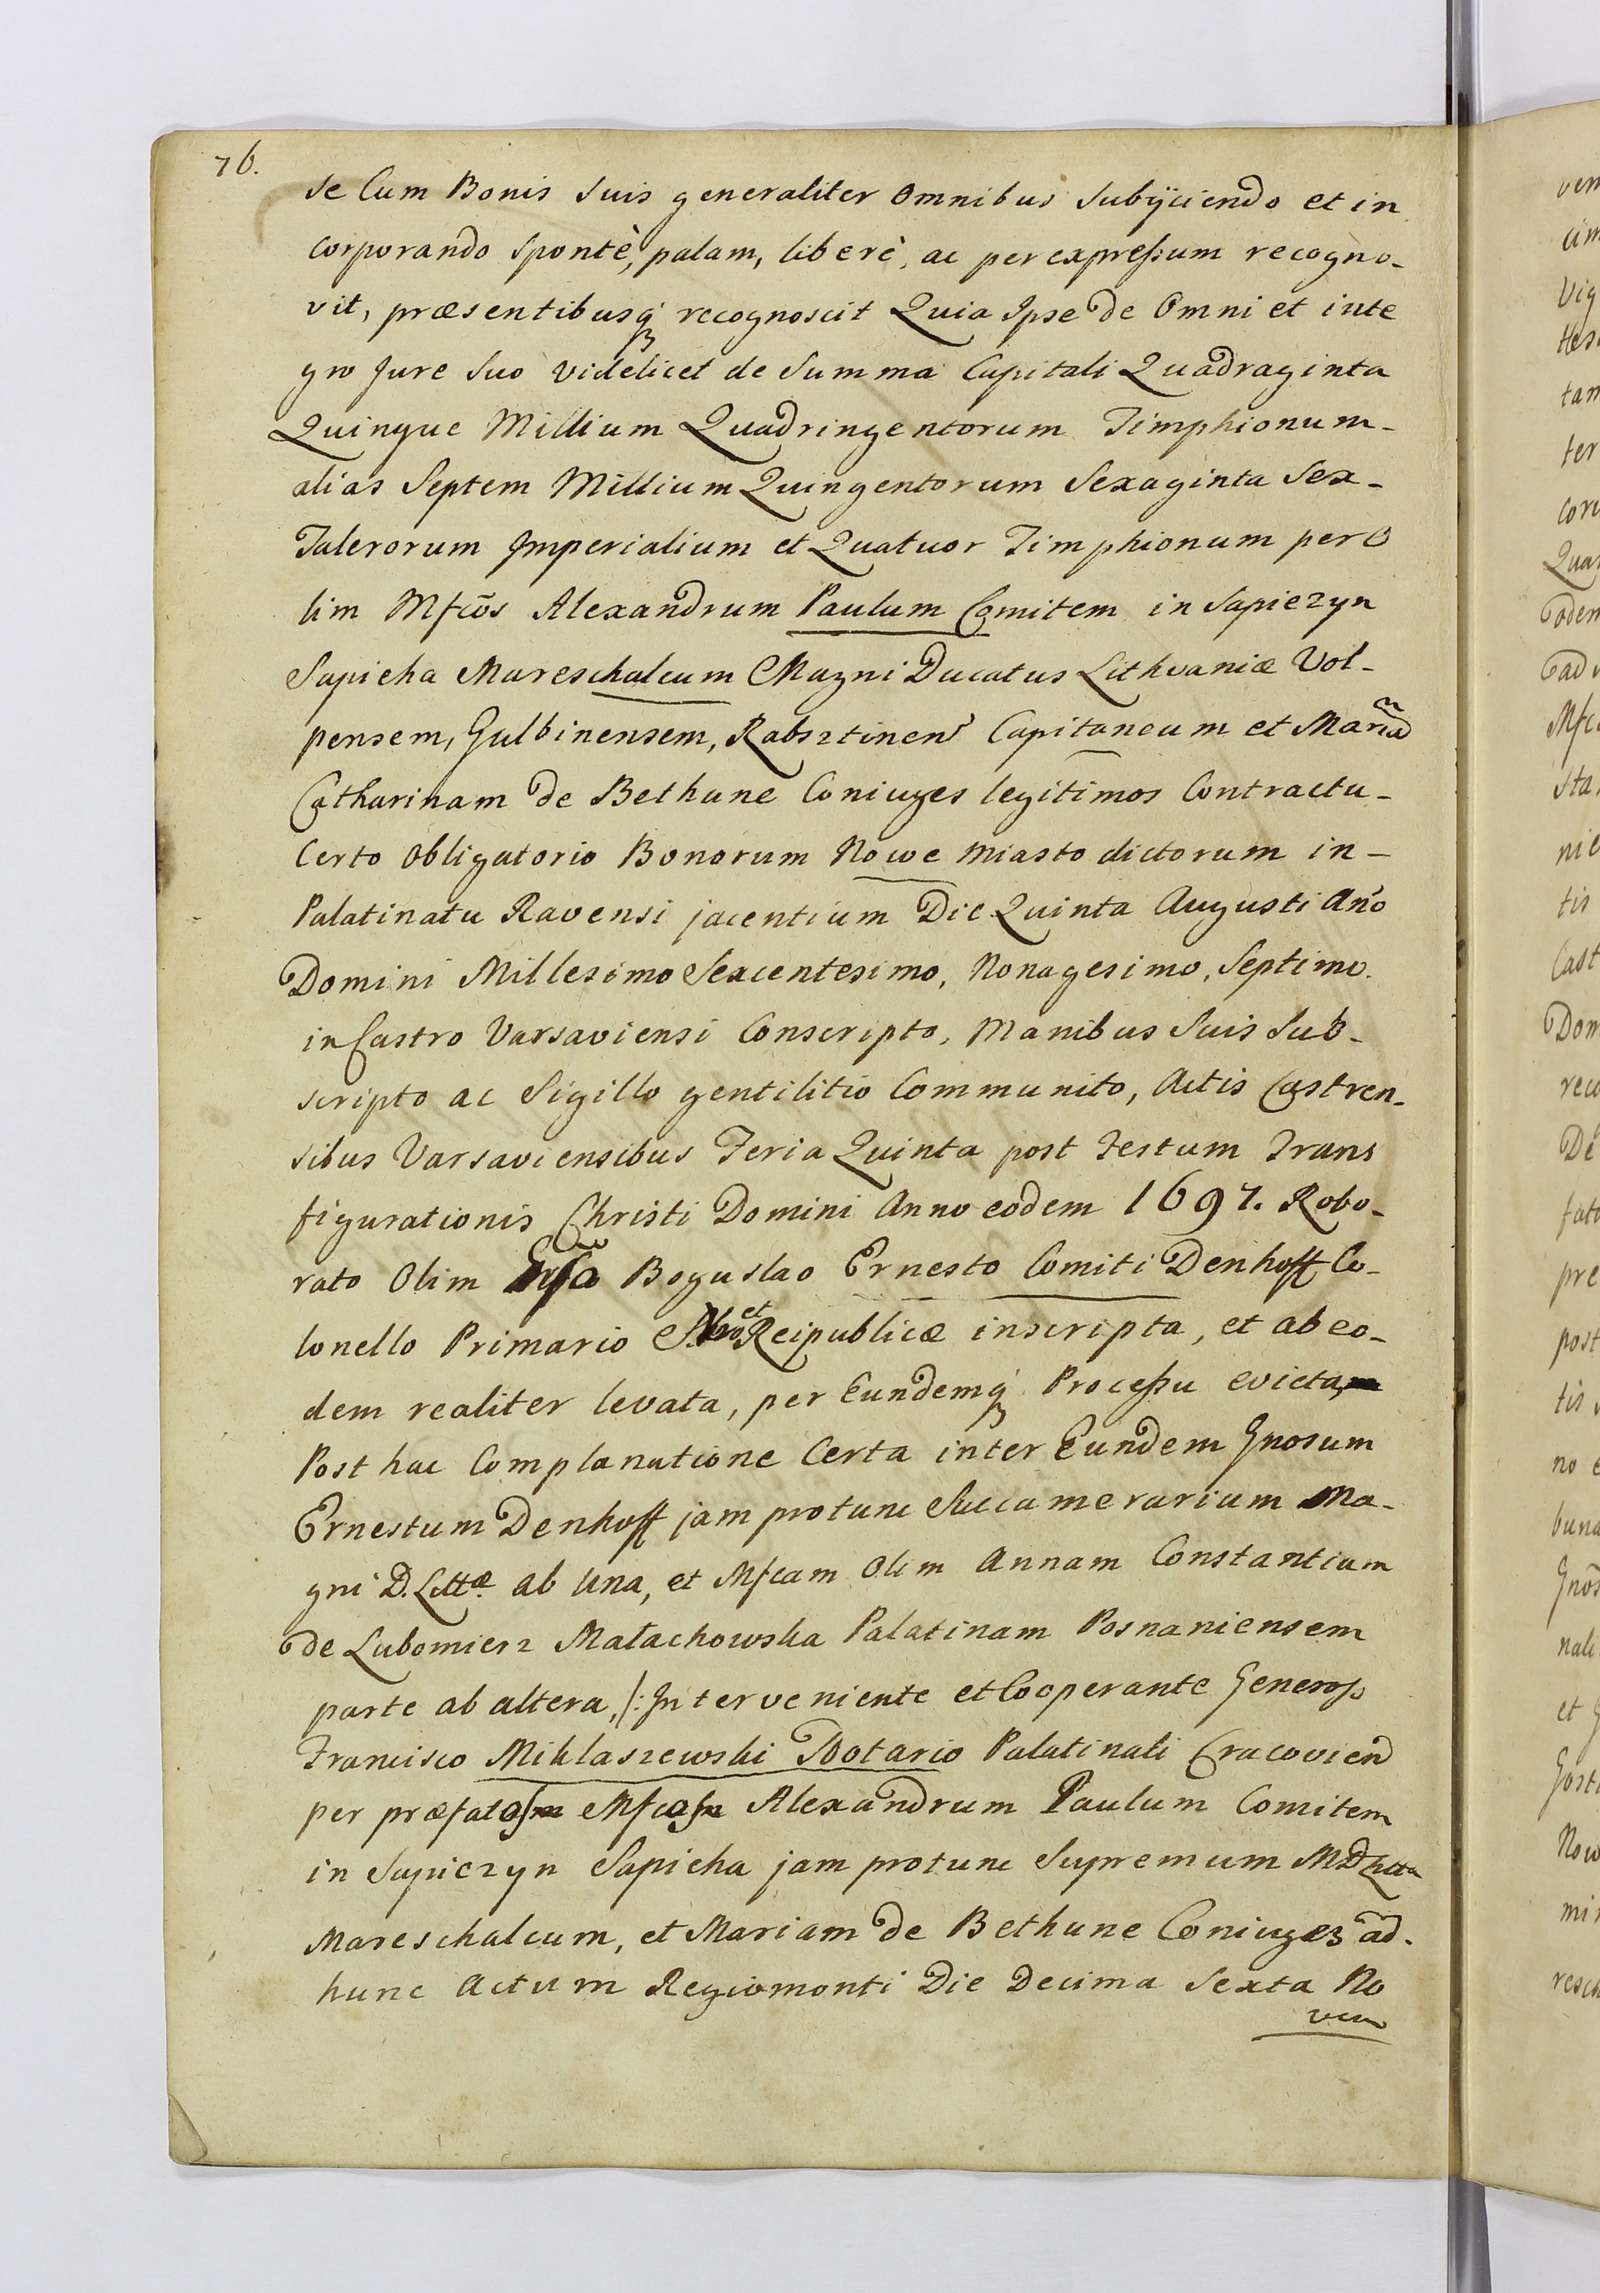 76.
se Cum Bonis suis generaliter Omnibus Subÿciendo et in
corporando spontè, palam, liberè, ac per expressum recogno-
vit, præsentibusq; recognoscit Quia Ipse de Omni et inte
gro Jure suo videlicet de Summa Capitali Quadraginta
Quinque Millium Quadringentorum Timphionum-
alias Septem Millium Quingentorum Sexaginta Sex-
Talerorum Imperialium et Quatuor Timphionum per O
lim Mfcõs Alexandrum Paulum Comitem in Sapiezyn
Sapieha Mareschalcum Magni Ducatus Lithvaniæ Vol-
pensem, Gulbinensem, Rabsztinen Capitaneum et Mariã
Catharinam de Bethune Coniuges legitimos Contractu-
Certo Obligatorio Bonorum Nowe Miasto dictorum in-
Palatinatu Ravensi jacentium Die Quinta Augusti Año
Domini Millesimo Sexcentesimo, Nonagesimo, Septimo.
in Castro Varsaviensi Conscripto, Manibus Suis Sub-
scripto ac Sigillo gentilitio Communito, Actis Castren-
sibus Varsaviensibus Feria Quinta post Festum Trans
figurationis Christi Domini Anno eodem 1697. Robo-
rato Olim Boguslao Ernesto Comiti Denhoff Co-
lonello Primario et Reipublicæ inscripta, et ab eo-
dem realiter levata, per Eundemq; Processu evicta,
Post hac Complanatione Certa inter Eundem Gnosum
Ernestum Denhoff jam protunc Succamerarium Ma-
gni D. Littæ ab Una, et Mfcam Olim Annam Constantiam
de Lubomierz Małachowska Palatinam Posnaniensem
parte ab altera, /: Interveniente et Cooperante Generoso
Francisco Miklaszewski Notario Palatinali Cracovien
per præfatos Mfcos Alexandrum Paulum Comitem
in Sapiezyn Sapieha jam protunc Supremum M.D. Litta
Mareschalcum, et Mariam de Bethune Coniuges ad-
hunc Actum Regiomonti Die Decima Sexta No
vem